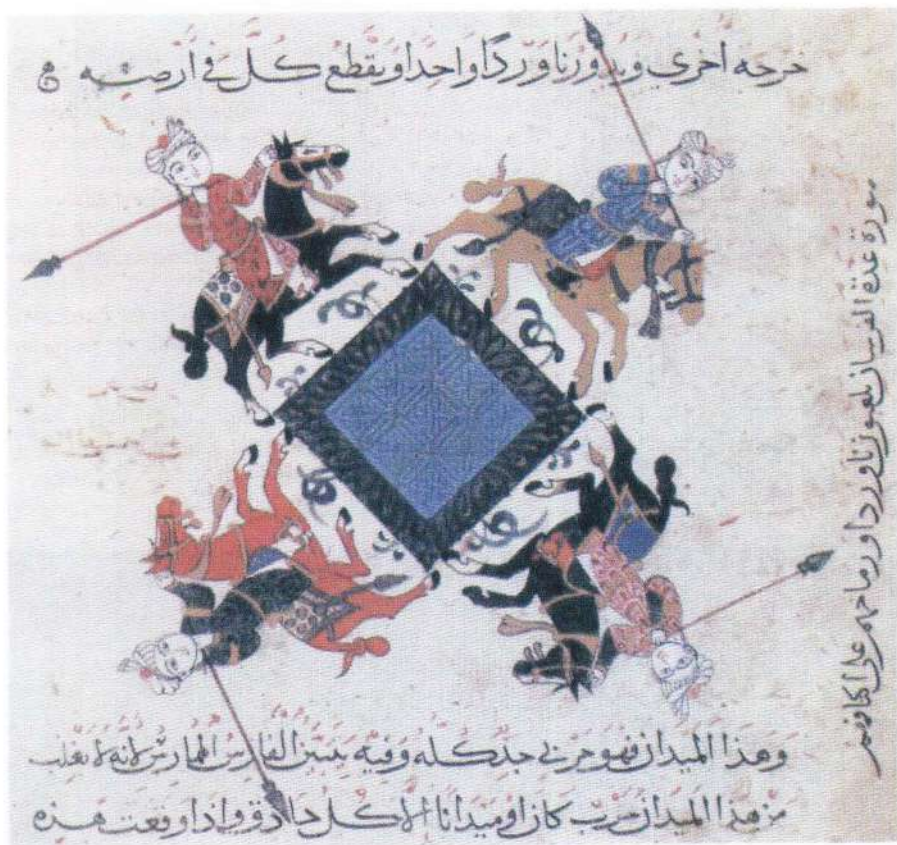 خرجه أخرى ويدورنا وردًا واحدا ويقطع كل في ارضه
صورة عدة الفرسان يلعبون ناوردا ورماحهم على اكتافهم
وهذا الميدان فهو حربي جد كله وفيه يتبين الفارس الممارس لانه لا يغلب
من هذا الميدان حرب كان او ميدانا الا كل حاذق واذا وقعت هذه